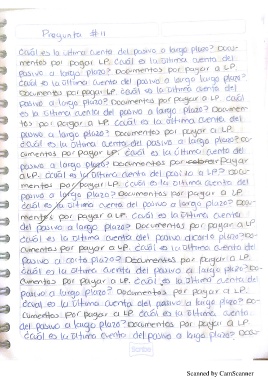 Pregunta #11
Cuál es la última cuenta del pasivo a largo plazo? Docu-
mentos por pagar LP. Cuál es la última cuenta del
pasivo a largo plazo? Documentos por pagar a LP.
Cuál es la última cuenta del pasivo a largo plazo?
Documentos por pagar LP. Cuál es la última cuenta del
pasivo a largo plazo? Documentos por pagar a LP. cuál
es la última cuenta del pasivo a largo plazo? Documen-
tos por pagar a LP. Cuál es la última cuenta del
pasivo a largo plazo? Documentos por pagar a LP.
Cuál es la última cuenta del pasivo a largo plazo?
Documentos por pagar a LP. cuál es la última cuenta
del pasivo a largo plazo? Documentos por pagar
a LP. Cuál es la última cuenta del pasivo a LP? Docu-
mentos por pagar a LP. Cuál es la última cuenta del
pasivo a largo plazo? Documentos por pagar a LP. cuál
es la última cuenta del pasivo a largo plazo? Docu-
mentos por pagar a LP. Cuál es la última cuenta
del pasivo a largo plazo? Documentos por pagar a LP.
cuál es la última cuenta del pasivo a corto plazo? Do-
cumentos por pagar a LP. cuál es la última cuenta del
pasivo a corto plazo? Documentos por pagar a LP.
Cuál es la última cuenta del pasivo a largo plazo? Do-
cumentos por pagar a LP. Cuál es la última cuenta del
pasivo a largo plazo? Documentos por pagar a LP.
cuál es la última cuenta del pasivo a largo plazo?
Documentos por pagar a LP. cuál es la última cuenta
del pasivo a largo plazo? Documentos por pagar a LP.
Cuál es la última cuenta del pasivo a largo plazo? Do-
cumentos por pagar a LP.
Scribe
Scanned by CamScanner